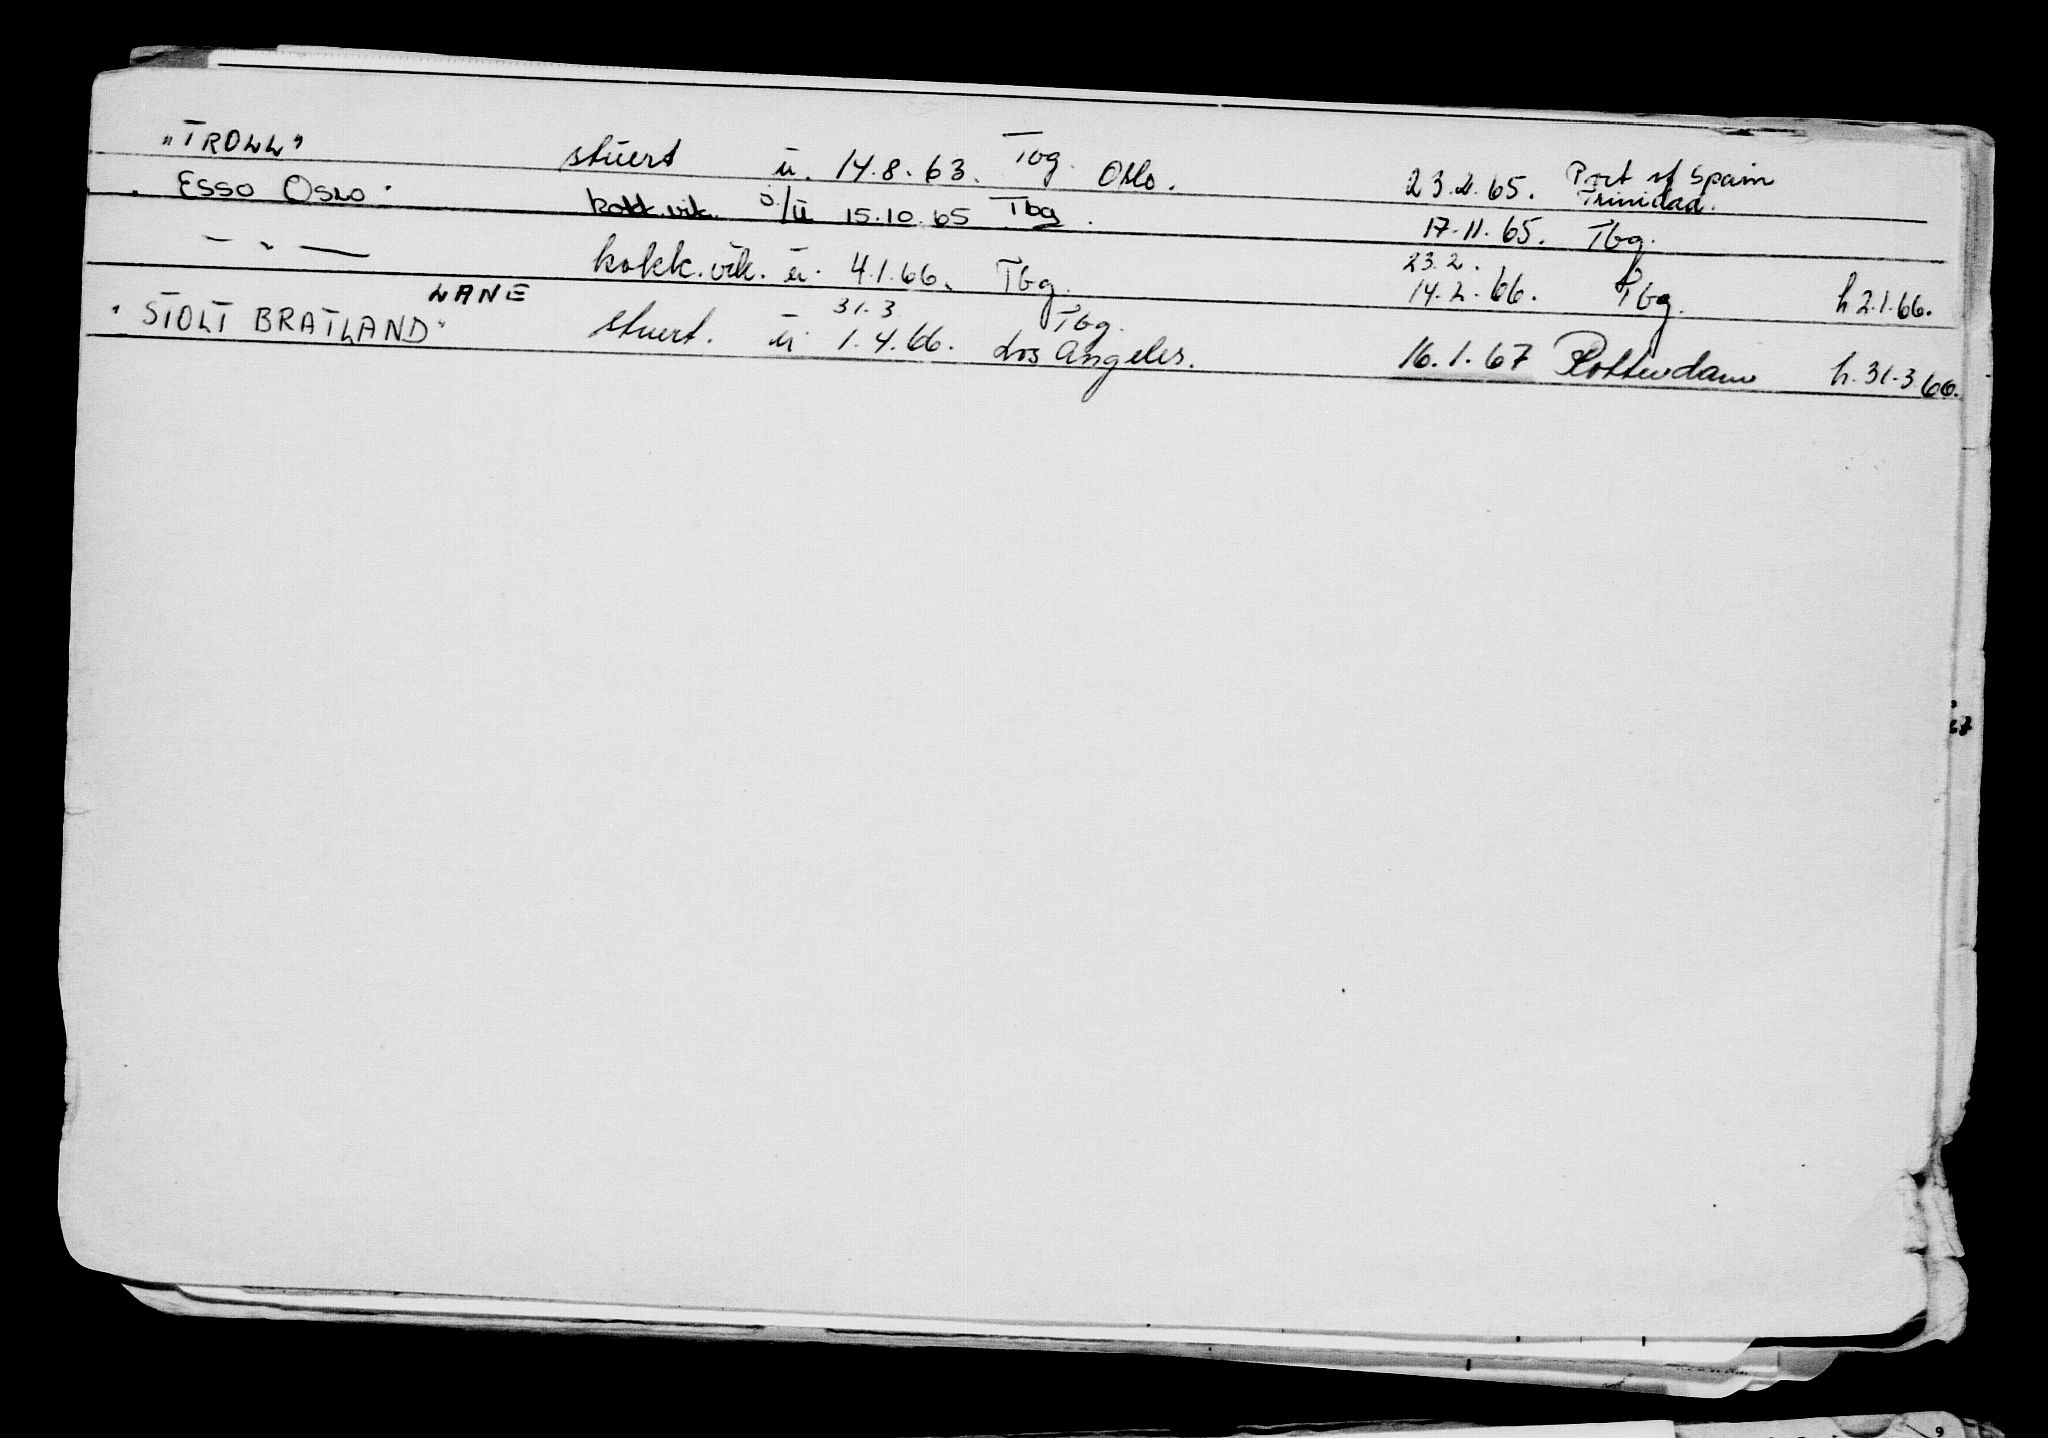 "TROLL" stuert u. 14.8.63. Tbg. Oslo. 23.2.65. Port of Spain Trinidad.
"Esso Oslo" kokk.vik. J/U 15.10.65 Tbg. 17.11.65. Tbg.
— " — kokk.vik. u. 4.1.66. Tbg. 23.2. 14.2.66. Tbg. h 2.1.66.
LANE 31.3 Tbg.
"STOLT BRATLAND" stuert. u 1.4.66. Los Angeles. 16.1.67 Rotterdam h. 31.3.66.